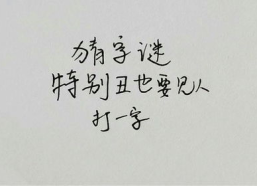 猜字谜
特别丑也要见人
打一字